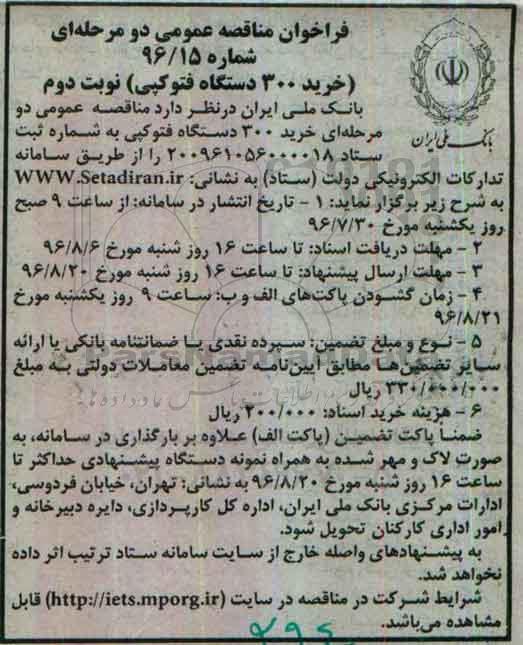 فراخوان مناقصه عمومی دو مرحله‌ای
شماره ۹۶/۱۵
(خرید ۳۰۰ دستگاه فتوکپی) نوبت دوم
بانک ملی ایران
بانک ملی ایران درنظر دارد مناقصه عمومی دو
مرحله‌ای خرید ۳۰۰ دستگاه فتوکپی به شماره ثبت
ستاد ۲۰۰۹۶۱۰۵۶۰۰۰۰۱۸ را از طریق سامانه
تدارکات الکترونیکی دولت (ستاد) به نشانی: WWW.Setadiran.ir
به شرح زیر برگزار نماید: ۱ - تاریخ انتشار در سامانه: از ساعت ۹ صبح
روز یکشنبه مورخ ۹۶/۷/۳۰
۲ - مهلت دریافت اسناد: تا ساعت ۱۶ روز شنبه مورخ ۹۶/۸/۶
۳ - مهلت ارسال پیشنهاد: تا ساعت ۱۶ روز شنبه مورخ ۹۶/۸/۲۰
۴ - زمان گشودن پاکت‌های الف و ب: ساعت ۹ روز یکشنبه مورخ
۹۶/۸/۲۱
۵ - نوع و مبلغ تضمین: سپرده نقدی یا ضمانتنامه بانکی یا ارائه
سایر تضمین‌ها مطابق آیین‌نامه تضمین معاملات دولتی به مبلغ
۳۳۰/۰۰۰/۰۰۰ ریال
۶ - هزینه خرید اسناد: ۲۰۰/۰۰۰ ریال
ضمنا پاکت تضمین (پاکت الف) علاوه بر بارگذاری در سامانه، به
صورت لاک و مهر شده به همراه نمونه دستگاه پیشنهادی حداکثر تا
ساعت ۱۶ روز شنبه مورخ ۹۶/۸/۲۰ به نشانی: تهران، خیابان فردوسی،
ادارات مرکزی بانک ملی ایران، اداره کل کارپردازی، دایره دبیرخانه و
امور اداری کارکنان تحویل شود.
به پیشنهادهای واصله خارج از سایت سامانه ستاد ترتیب اثر داده
نخواهد شد.
شرایط شرکت در مناقصه در سایت (http://iets.mporg.ir) قابل
مشاهده می‌باشد.